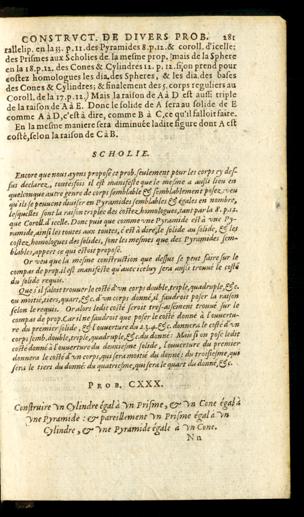 CONSTRVCT. DE DIVERS PROB. 281
rallelip. en la 33. p. 11. des Pyramides 8. p. 12. & coroll. d'icelle;
des Prismes aux Scholies de la mesme prop. mais de la Sphere
en la 18. p. 12. des Cones & Cylindres 12. p. 12. si on prend pour
costez homologues les dia. des Spheres, & les dia. des bases
des Cones & Cylindres; & finalement des 5. corps reguliers au
Coroll. de la 17. p. 12.) Mais la raison de A à D est aussi triple
de la raison de A à E. Donc le solide de A sera au solide de E
comme A à D, c'est à dire, comme B à C, ce qu'il falloit faire.
En la mesme maniere sera diminuée ladite figure dont A est
costé, selon la raison de C à B.
SCHOLIE.
Encore que nous ayons proposé ce prob. seulement pour les corps cy des-
sus declarez, toutesfois il est manifeste que le mesme a aussi lieu en
quelconque autre genre de corps semblable & semblablement posez, veu
qu'ils se peuuent diuiser en Pyramides semblables & egales en nombre,
lesquelles sont la raison triplee des costez homologues, tant par la 8. p. 12.
que Coroll. d'icelle. Donc puis que comme vne Pyramide est à vne Py-
ramide, ainsi les toutes aux toutes, c'est à dire, le solide au solide, & les
costez homologues des solides, sont les mesmes que des Pyramides sem-
blables, appert ce qui estoit proposé.
Or veu que la mesme construction que dessus se peut faire sur le
compas de prop. il est manifeste qu'auec iceluy sera aussi trouué le costé
du solide requis.
Que s'il faloit trouuer le costé d'vn corps double, triple, quadruple, &c.
ou moitié, tiers, quart, &c. d'vn corps donné, il faudroit poser la raison
selon le requis. Or alors ledit costé seroit tres-aisement trouué sur le
compas de prop. Car il ne faudroit que poser le costé donné à l'ouuertu-
re du premier solide, & l'ouuerture du 2.3.4. &c. donnera le costé d'vn
corps semb. double, triple, quadruple, &c. du donné: Mais si on pose ledit
costé donné à l'ouuerture du deuxiesme solide, l'ouuerture du premier
donnera le costé d'vn corps, qui sera moitié du donné: du troisiesme, qui
sera le tiers du donné: du quatriesme, qui sera le quart du donné, &c.
PROB. CXXX.
Construire vn Cylindre égal à vn Prisme, & vn Cone égal à
vne Pyramide: & pareillement vn Prisme égal à vn
Cylindre, & vne Pyramide égale à vn Cone.
Nn